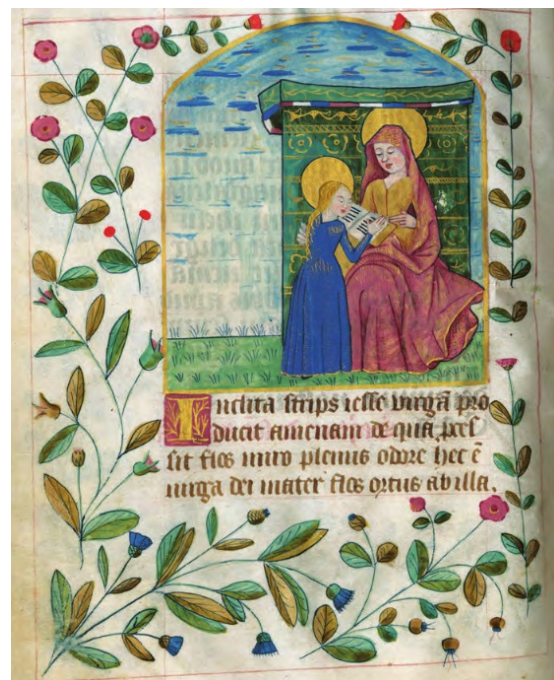 Inclita stirps iesse virgã pro
ducit amenam de qua proces
sit flos miro plenus odore hec ẽ
virga dei mater flos ortus ab illa.